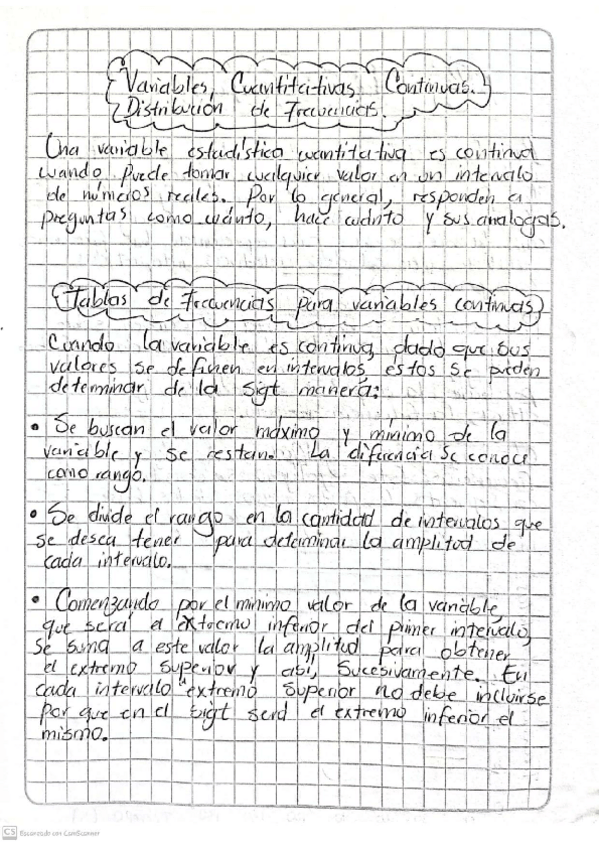 Variables, Cuantitativas Continuas.
Distribución de Frecuencias.
Una variable estadística cuantitativa es continua
cuando puede tomar cualquier valor en un intervalo
de números reales. Por lo general, responden a
preguntas como cuánto, hace cuánto y sus analogas.
Tablas de Frecuencias para variables continuas
Cuando la variable es continua, dado que sus
valores se definen en intervalos, estos se pueden
determinar de la sigt manera:
• Se buscan el valor máximo y mínimo de la
variable y se restan. La diferencia se conoce
como rango.
• Se divide el rango en la cantidad de intervalos que
se desea tener para determinar la amplitud de
cada intervalo.
• Comenzando por el mínimo valor de la variable,
que será el extremo inferior del primer intervalo,
se suma a este valor la amplitud para obtener
el extremo superior y así, sucesivamente. En
cada intervalo extremo superior no debe incluirse
por que en el sigt será el extremo inferior el
mismo.
CS Escaneado con CamScanner